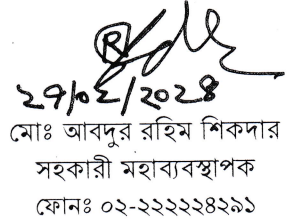 ২৭/০৫/২০২৪
মোঃ আবদুর রহিম শিকদার
সহকারী মহাব্যবস্থাপক
ফোনঃ ০২-২২২২২৪২৯১